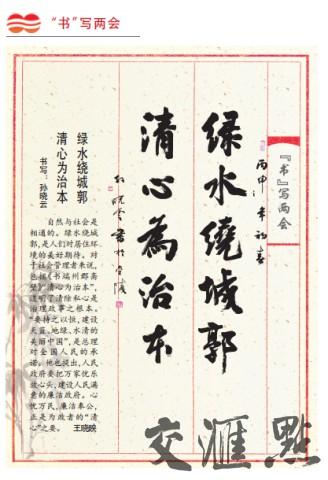 “书”写两会
『书』写两会
丙申年初春
绿水繞城郭
清心為治本
孙晓云書於金陵
绿水绕城郭
清心为治本
书写：孙晓云
自然与社会是
相通的。绿水绕城
郭，是人们对居住环
境的美好期待。对
于社会管理者来说，
包拯《书端州郡斋
壁》“清心为治本”，
道明了清除私心是
治理政事之根本。
“要持之以恒，建设
天蓝、地绿、水清的
美丽中国”，是总理
对全国人民的承
诺。他也提出，人民
政府要把万家忧乐
放心头，建设人民满
意的廉洁政府。心
忧万民，廉洁奉公，
正是为政者的“清
心”之要。 王晓映
交汇點